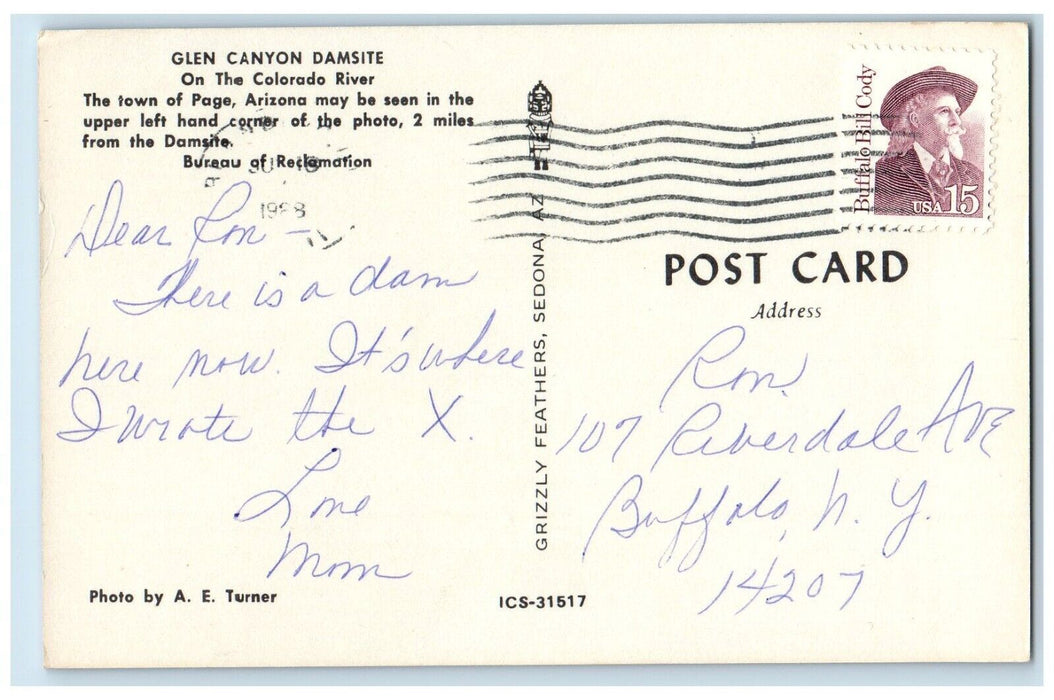 GLEN CANYON DAMSITE
On The Colorado River
The town of Page, Arizona may be seen in the
upper left hand corner of the photo, 2 miles
from the Damsite.
Bureau of Reclamation
1988
Dear Ron –
There is a dam
here now. It's where
I wrote the X.
Love
Mom
Photo by A. E. Turner
GRIZZLY FEATHERS, SEDONA, AZ
ICS-31517
Buffalo Bill Cody
USA 15
POST CARD
Address
Ron
107 Riverdale AVE
Buffalo, N. Y.
14207